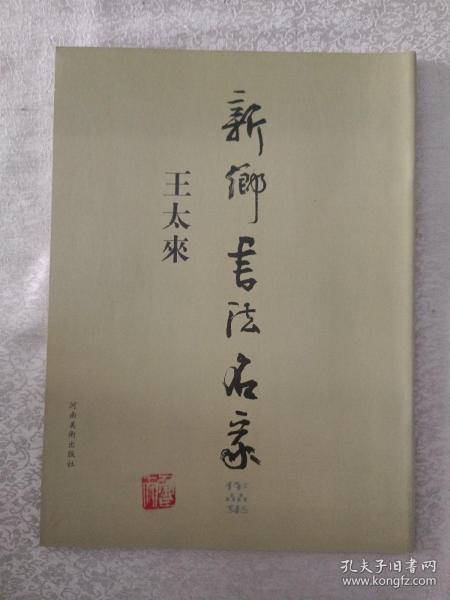 新鄉書法名家
作品集
王太來
河南美術出版社
孔夫子旧书网
www.kongfz.com